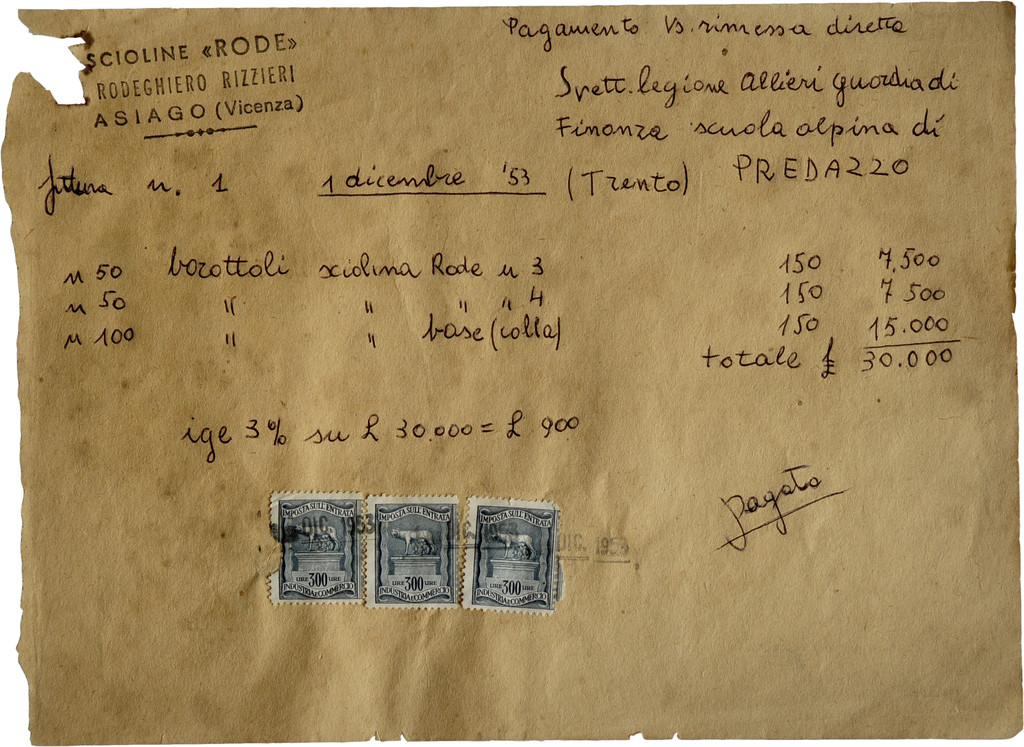 SCIOLINE «RODE»
RODEGHIERO RIZZIERI
ASIAGO (Vicenza)
Pagamento Vs. rimessa diretta
Sprett. legione allievi guardia di
Finanza scuola alpina di
PREDAZZO
(Trento)
fattura n. 1 1 dicembre '53
n 50 barattoli sciolina Rode n 3 150 7,500
n 50 " " " " 4 150 7 500
n 100 " " base (colla) 150 15.000
totale £ 30.000
ige 3% su £ 30.000 = £ 900
pagato
IMPOSTA SULL'ENTRATA
LIRE 300 LIRE
INDUSTRIA E COMMERCIO
DIC. 1953
IMPOSTA SULL'ENTRATA
LIRE 300 LIRE
INDUSTRIA E COMMERCIO
DIC. 1953
IMPOSTA SULL'ENTRATA
LIRE 300 LIRE
INDUSTRIA E COMMERCIO
DIC. 1953